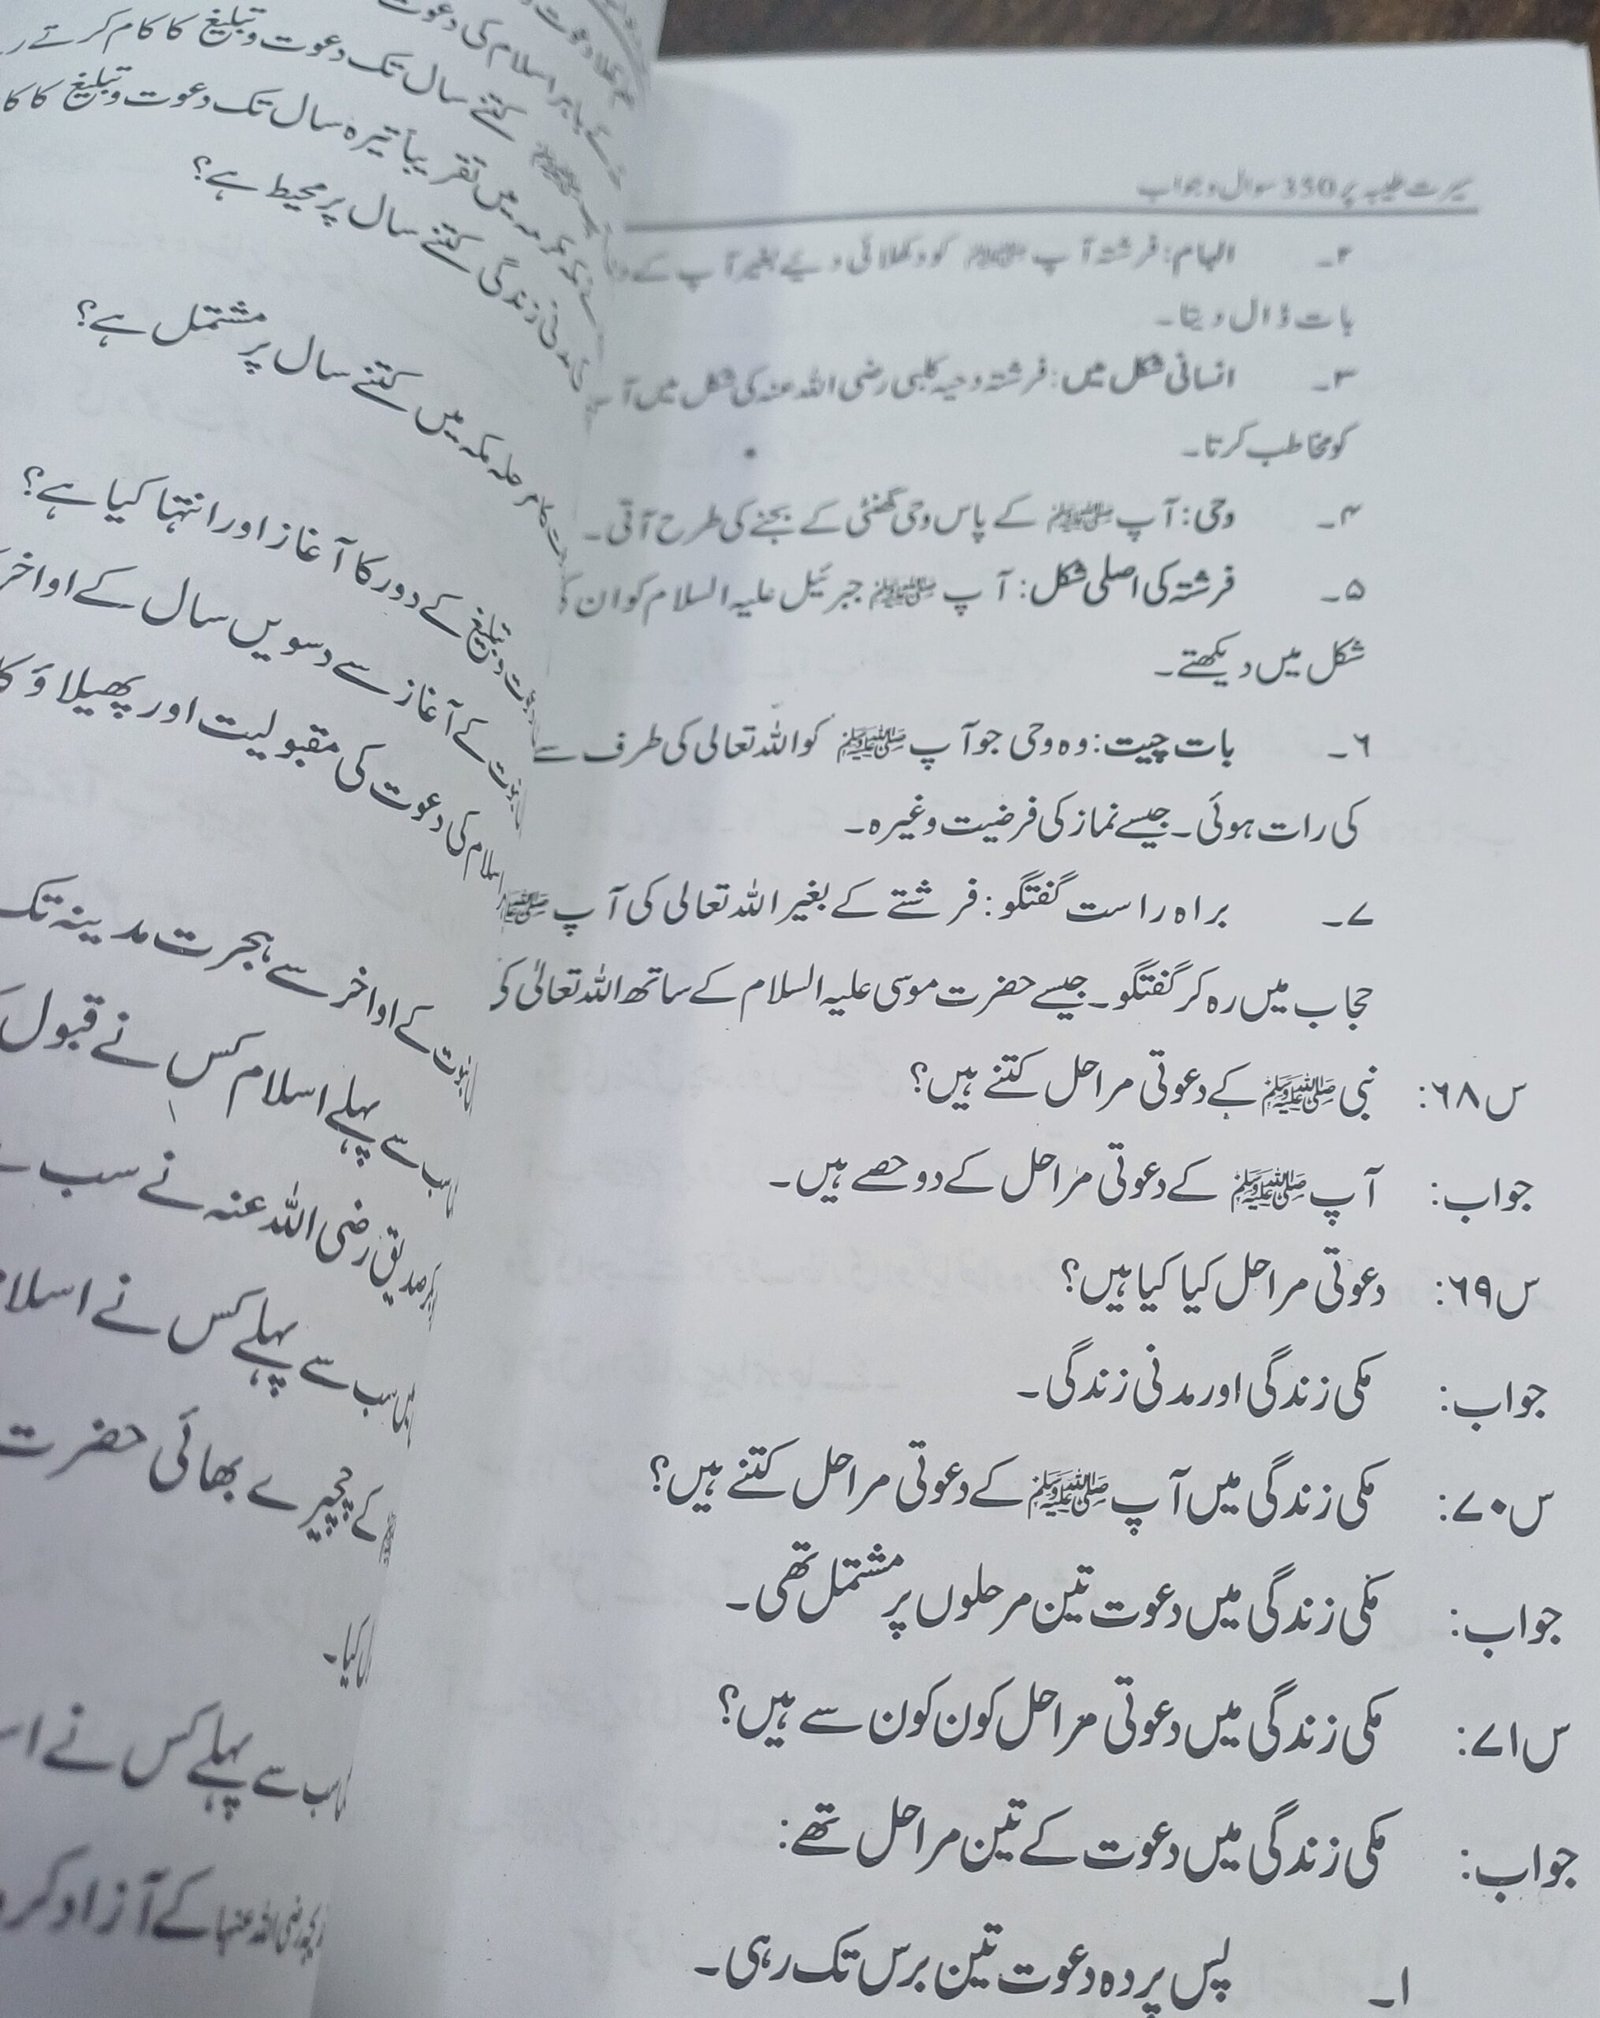 سیرت طیبہ پر 350 سوال و جواب
۲۔ الہام: فرشتہ آپ ﷺ کو دکھلائی دیئے بغیر آپ کے
بات ڈال دیتا۔
۳۔ انسانی شکل میں: فرشتہ دحیہ کلبی رضی اللہ عنہ کی شکل میں آ
کو مخاطب کرتا۔
۴۔ وحی: آپ ﷺ کے پاس وحی گھنٹی کے بجنے کی طرح آتی۔
۵۔ فرشتہ کی اصلی شکل: آپ ﷺ جبرئیل علیہ السلام کو ان
شکل میں دیکھتے۔
۶۔ بات چیت: وہ وحی جو آپ ﷺ کو اللہ تعالی کی طرف سے
کی رات ہوئی۔ جیسے نماز کی فرضیت وغیرہ۔
۷۔ براہ راست گفتگو: فرشتے کے بغیر اللہ تعالی کی آپ ﷺ
حجاب میں رہ کر گفتگو۔ جیسے حضرت موسی علیہ السلام کے ساتھ اللہ تعالیٰ
س۶۸: نبی ﷺ کے دعوتی مراحل کتنے ہیں؟
جواب: آپ ﷺ کے دعوتی مراحل کے دو حصے ہیں۔
س۶۹: دعوتی مراحل کیا کیا ہیں؟
جواب: مکی زندگی اور مدنی زندگی۔
س۷۰: مکی زندگی میں آپ ﷺ کے دعوتی مراحل کتنے ہیں؟
جواب: مکی زندگی میں دعوت تین مرحلوں پر مشتمل تھی۔
س۷۱: مکی زندگی میں دعوتی مراحل کون کون سے ہیں؟
جواب: مکی زندگی میں دعوت کے تین مراحل تھے:
۱۔ پس پردہ دعوت تین برس تک رہی۔
کے باہر اسلام کی دعوت
ﷺ کتنے سال تک دعوت و تبلیغ کا کام کرتے
میں تقریباً تیرہ سال تک دعوت و تبلیغ کا
مدنی زندگی کتنے سال پر محیط ہے؟
مرحلہ مکہ میں کتنے سال پر مشتمل ہے؟
و تبلیغ کے دور کا آغاز اور انتہا کیا ہے؟
کے آغاز سے دسویں سال کے اواخر
اسلام کی دعوت کی مقبولیت اور پھیلاؤ
نبوت کے اواخر سے ہجرت مدینہ تک
سب سے پہلے اسلام کس نے قبول
صدیق رضی اللہ عنہ نے سب
میں سب سے پہلے کس نے اسلام
کے چچیرے بھائی حضرت
کیا۔
سب سے پہلے کس نے
رضی اللہ عنہا کے آزاد کر